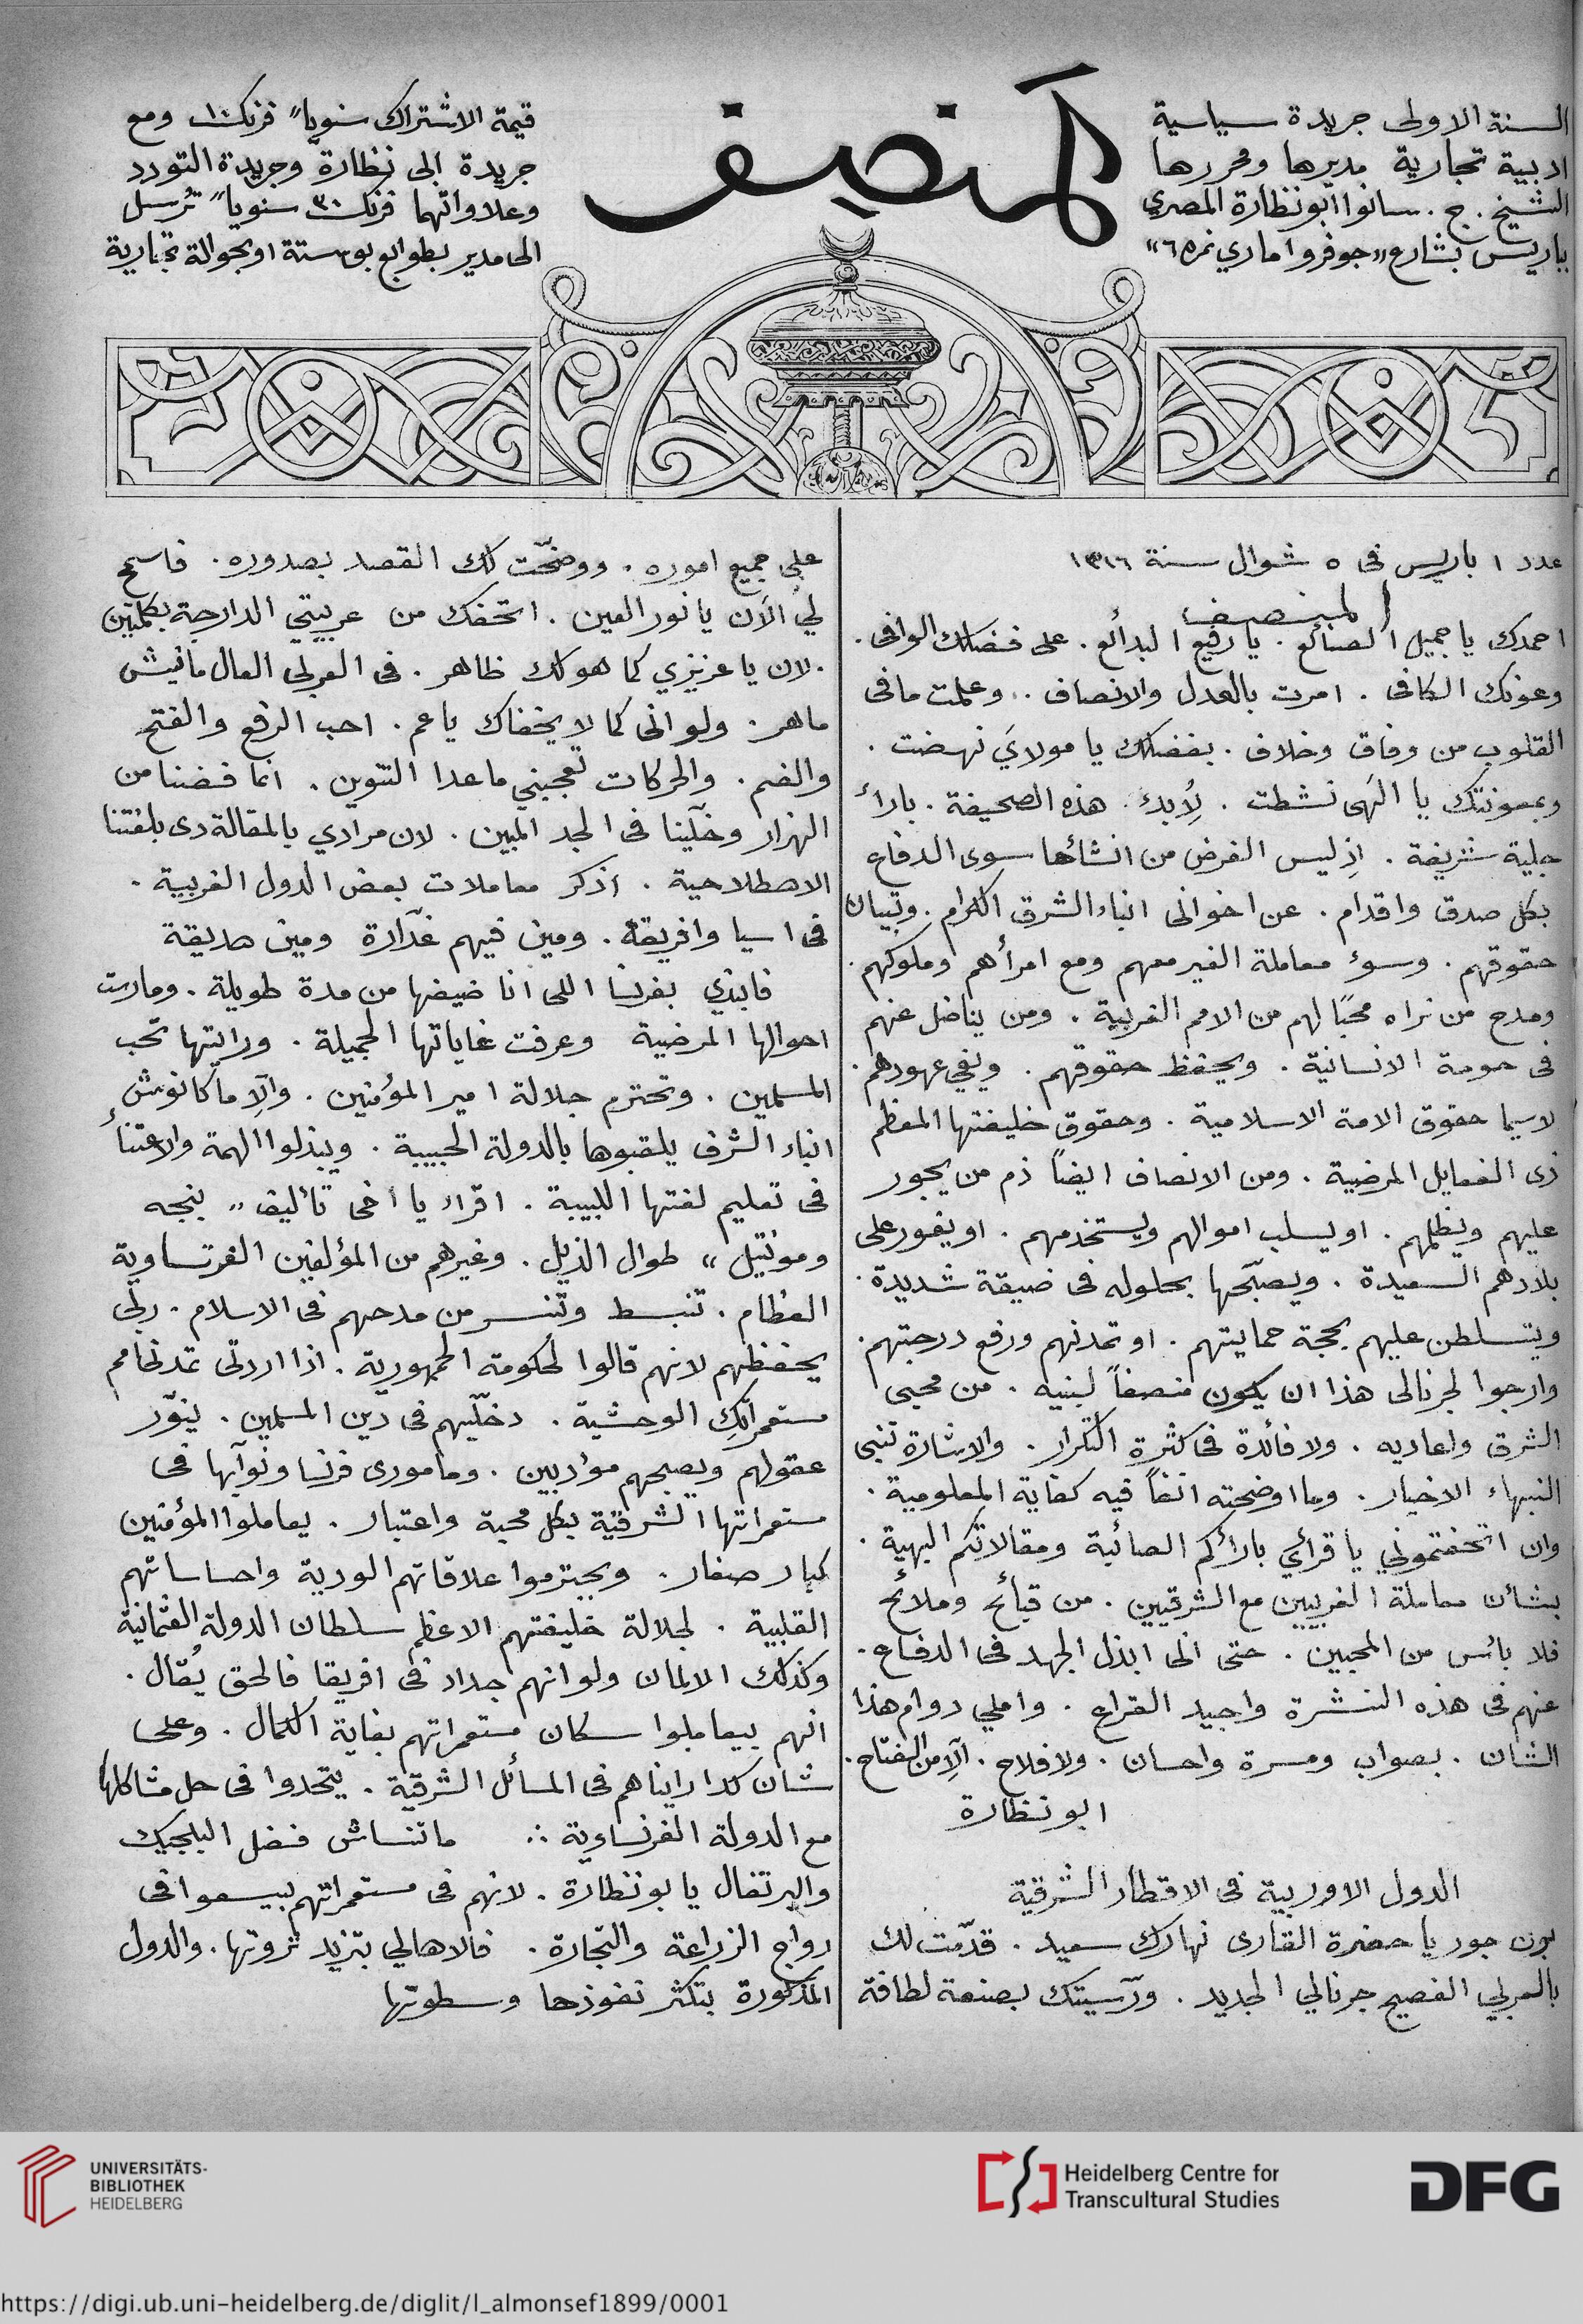 السنة الاولى جريدة سياسية
ادبية تجارية مديرها ومحررها
الشيخ . ج . سانوا ابونظارة المصري
بباريس بشارع «جوفروا ماري نمره ٦»
المنصف
قيمة الاشتراك سنويّاً فرنك ١٠ ومع
جريدة ابى نظارة وجريدة التودد
وعلاواتهما فرنك ٣٠ سنوياً تُرسل
الى مدير بطوابع بوستة او بحوالة تجارية
عدد ١ باريس فى ٥ شوال سنة ١٣١٦
المنصف
احمدك يا جميل الصنائع . يا رفيع البدائع . على فضلك الوافى .
وعونك الكافى . امرت بالعدل والانصاف .. وعلمت ما فى
القلوب من وفاق وخلاف . بفضلك يا مولايَ نهضت .
وبمعونتك يا الهى نشطت . لِأُبدء هذه الصحيفة . باراء
جلية شريفة . اذ ليس الغرض من انشائها سوى الدفاع
بكل صدق واقدام . عن اخوانى ابناء الشرق الكرام . وتبيان
حقوقهم . وسوء معاملة الغير معهم ومع امرائهم وملوكهم .
ومدح من نراه محبًا لهم من الامم الغربية . ومن يناضل عنهم
فى حومة الانسانية . ويحفظ حقوقهم . ويفي عهودهم .
لاسيما حقوق الامة الاسلامية . وحقوق خليفتها المعظم
ذى الفعايل المرضية . ومن الانصاف ايضاً ذم من يجور
عليهم ويظلمهم . او يسلب اموالهم ويستخدمهم . او يغور على
بلادهم السعيدة . ويصبّحها بحلوله فى ضيقة شديدة .
ويتسلطن عليهم بحجة حمايتهم . او تمدنهم ورفع درجتهم .
وارجوا لجرنالى هذا ان يكون منصفاً لبنيه . من محبى
الشرق واعاديه . ولا فائدة فى كثرة التكرار . والاشارة تنبى
النبهاء الاخيار . وما اوضحته انفاً فيه كفاية المعلومية .
وان اتحفتموني يا قرائي بارائكم الصائبة ومقالاتكم البهية .
بشان معاملة الغربيين مع الشرقيين . من قبائح وملائح
فلا بائس من المحبين . حتى انى ابذل الجهد فى الدفاع .
عنهم فى هذه النشرة واجيد القراع . واملي دوام هذا
الشان . بصواب ومسرة واحسان . ولا فلاح . الّا من الفتاح .
ابو نظارة
الدول الاوربية فى الاقطار الشرقية
بون جور يا حضرة القارى نهارك سعيد . قدّمت لك
بالعربي الفصيح جرنالي الجديد . ورّسيتك بصنعة لطافة
على جميع اموره . ووضّحت لك القصد بصدوره . فاسمح
لي الآن يا نور العين . اتحفك من عربيتي الدارجة بكلمتين
. لان يا عزيزي كما هو لك ظاهر . فى العربى العال مافيش
ماهر . ولو انى كما لا يخفاك يا عم . احب الرفع والفتح
والضم . والحركات تعجبني ما عدا التنوين . انما فضنا من
الهزار وخلّينا فى الجد المبين . لان مرادي بالمقالة دى بلغتنا
الاصطلاحية . اذكر معاملات بعض الدول الغربية .
فى اسيا وافريقة . ومين فيهم غدّارة ومين صديقة
فابتدي بفرنسا اللى انا ضيفها من مدة طويلة . ومارست
احوالها المرضية وعرفت غاياتها الجميلة . ورايتها تحب
المسلمين . وتحترم جلالة امير المؤمنين . والّا ما كانوش
ابناء الشرق يلقبوها بالدولة الحبيبة . ويبذلوا الهمة والاعتناء
فى تعليم لغتها اللبيبة . اقراء يا اخى تأليف « بنجه
ومونتيل » طوال الذيل . وغيرهم من المؤلفين الفرنساوية
العظام . تنبسط وتنسر من مدحهم فى الاسلام . ربى
يحفظهم لانهم قالوا لحكومة الجمهورية . اذا اردتى تمدنى امم
مستعمراتكِ الوحشية . دخلّيهم فى دين المسلمين . ينوّر
عقولهم ويصبحهم مؤدبين . ومامورى فرنسا ونوّابها فى
مستعمراتها الشرقية بكل محبة واعتبار . يعاملوا المؤمنين
كبار صغار . ويحترموا علاقاتهم الودية واحساساتهم
القلبية . لجلالة خليفتهم الاعظم سلطان الدولة العثمانية
وكذلك الالمان ولو انهم جداد فى افريقا فالحق يُقال .
انهم بيعاملوا سكان مستعمراتهم بغاية الكمال . وعلى
شان كدا رايناهم فى المسائل الشرقية . يتحدوا فى حل مشاكلها
مع الدولة الفرنساوية ∴ ماتنساش فضل البلجيك
والبرتغال يا بونظارة . لانهم فى مستعمراتهم بيسعوا فى
رواج الزراعة والتجارة . فالاهالي بتزيد ثروتها . والدول
المذكورة بتكثر نفوذها وسطوتها
UNIVERSITÄTS-
BIBLIOTHEK
HEIDELBERG
Heidelberg Centre for
Transcultural Studies
DFG
https://digi.ub.uni-heidelberg.de/diglit/l_almonsef1899/0001